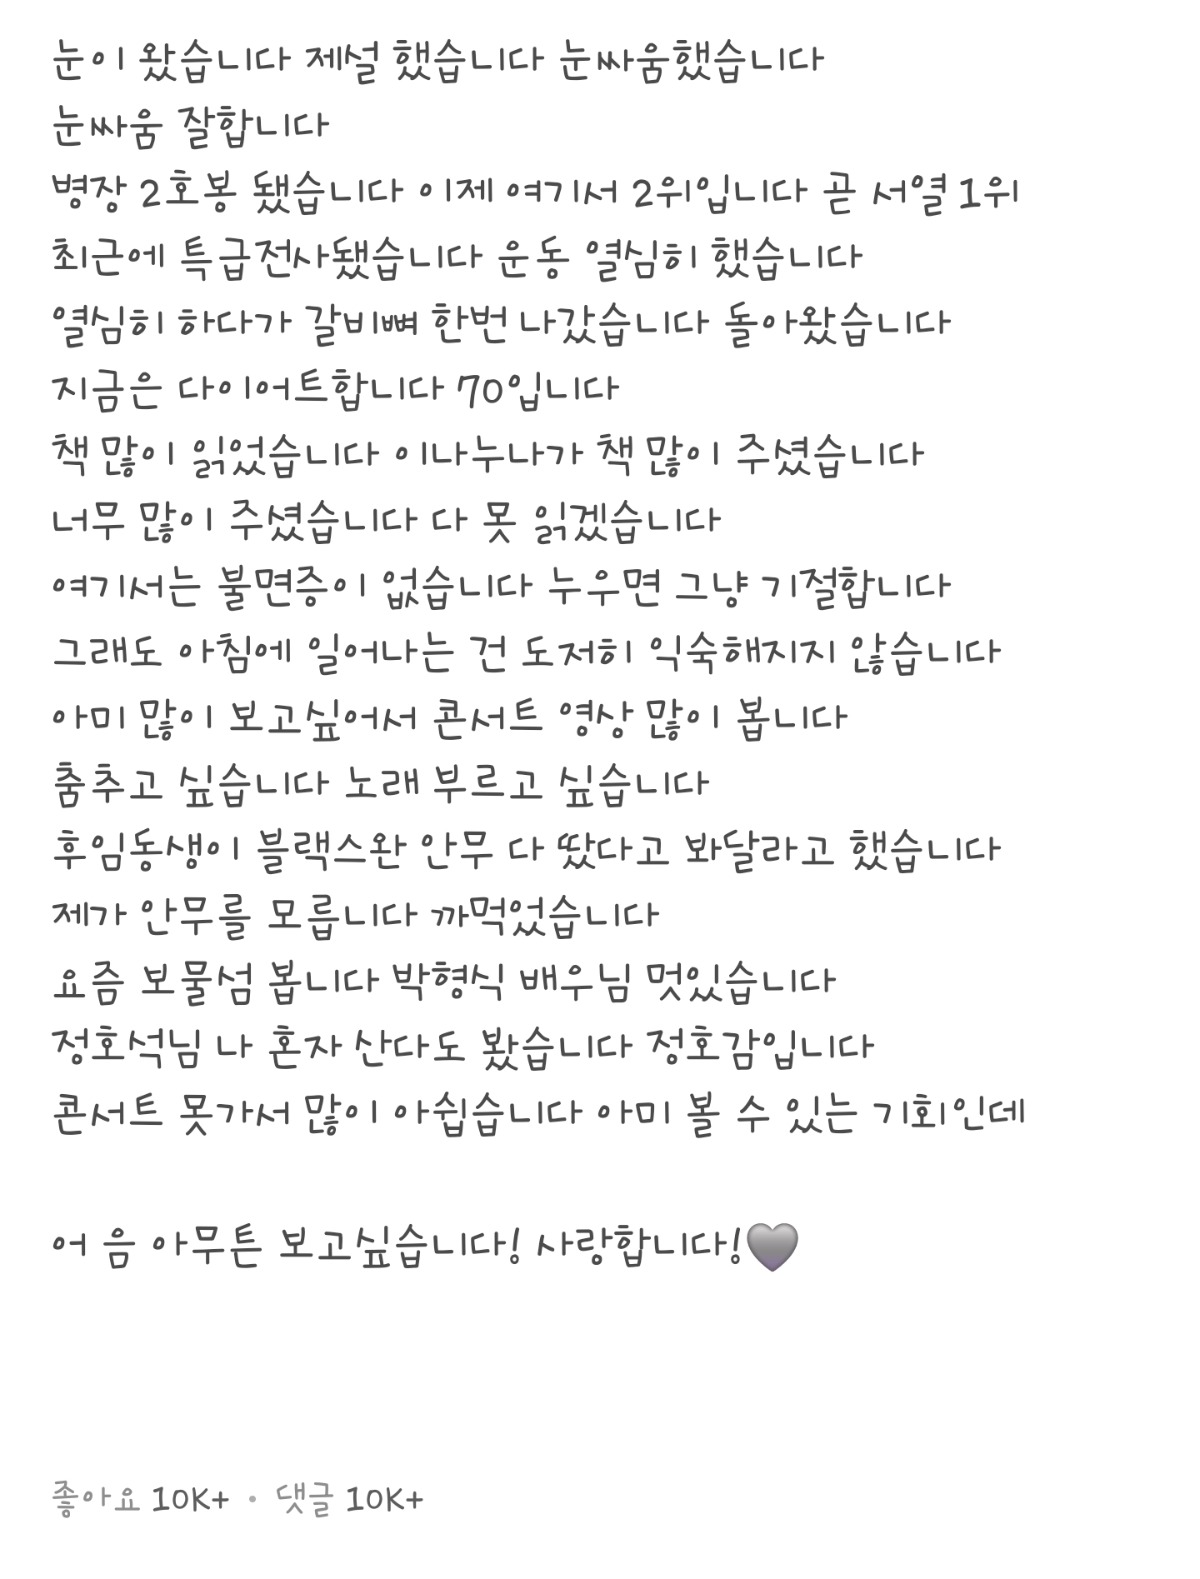 눈이 왔습니다 제설 했습니다 눈싸움했습니다
눈싸움 잘합니다
병장 2호봉 됐습니다 이제 여기서 2위입니다 곧 서열 1위
최근에 특급전사됐습니다 운동 열심히 했습니다
열심히 하다가 갈비뼈 한번 나갔습니다 돌아왔습니다
지금은 다이어트합니다 70입니다
책 많이 읽었습니다 이나누나가 책 많이 주셨습니다
너무 많이 주셨습니다 다 못 읽겠습니다
여기서는 불면증이 없습니다 누우면 그냥 기절합니다
그래도 아침에 일어나는 건 도저히 익숙해지지 않습니다
아미 많이 보고싶어서 콘서트 영상 많이 봅니다
춤추고 싶습니다 노래 부르고 싶습니다
후임동생이 블랙스완 안무 다 땄다고 봐달라고 했습니다
제가 안무를 모릅니다 까먹었습니다
요즘 보물섬 봅니다 박형식 배우님 멋있습니다
정호석님 나 혼자 산다도 봤습니다 정호감입니다
콘서트 못가서 많이 아쉽습니다 아미 볼 수 있는 기회인데
어 음 아무튼 보고싶습니다! 사랑합니다!🩶
좋아요 10K+ · 댓글 10K+